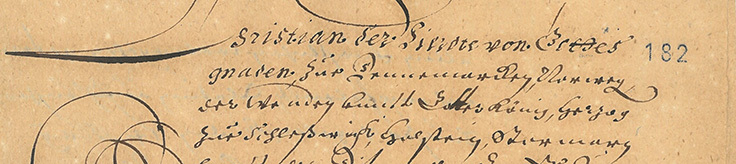 Christian der Vierdte von Gottes 182
gnaden, zue Dennemarcken, Norwegen,
der Wenden vundt Gotten König, Herzog
zue Schleßwich, Holstein, Stormarn